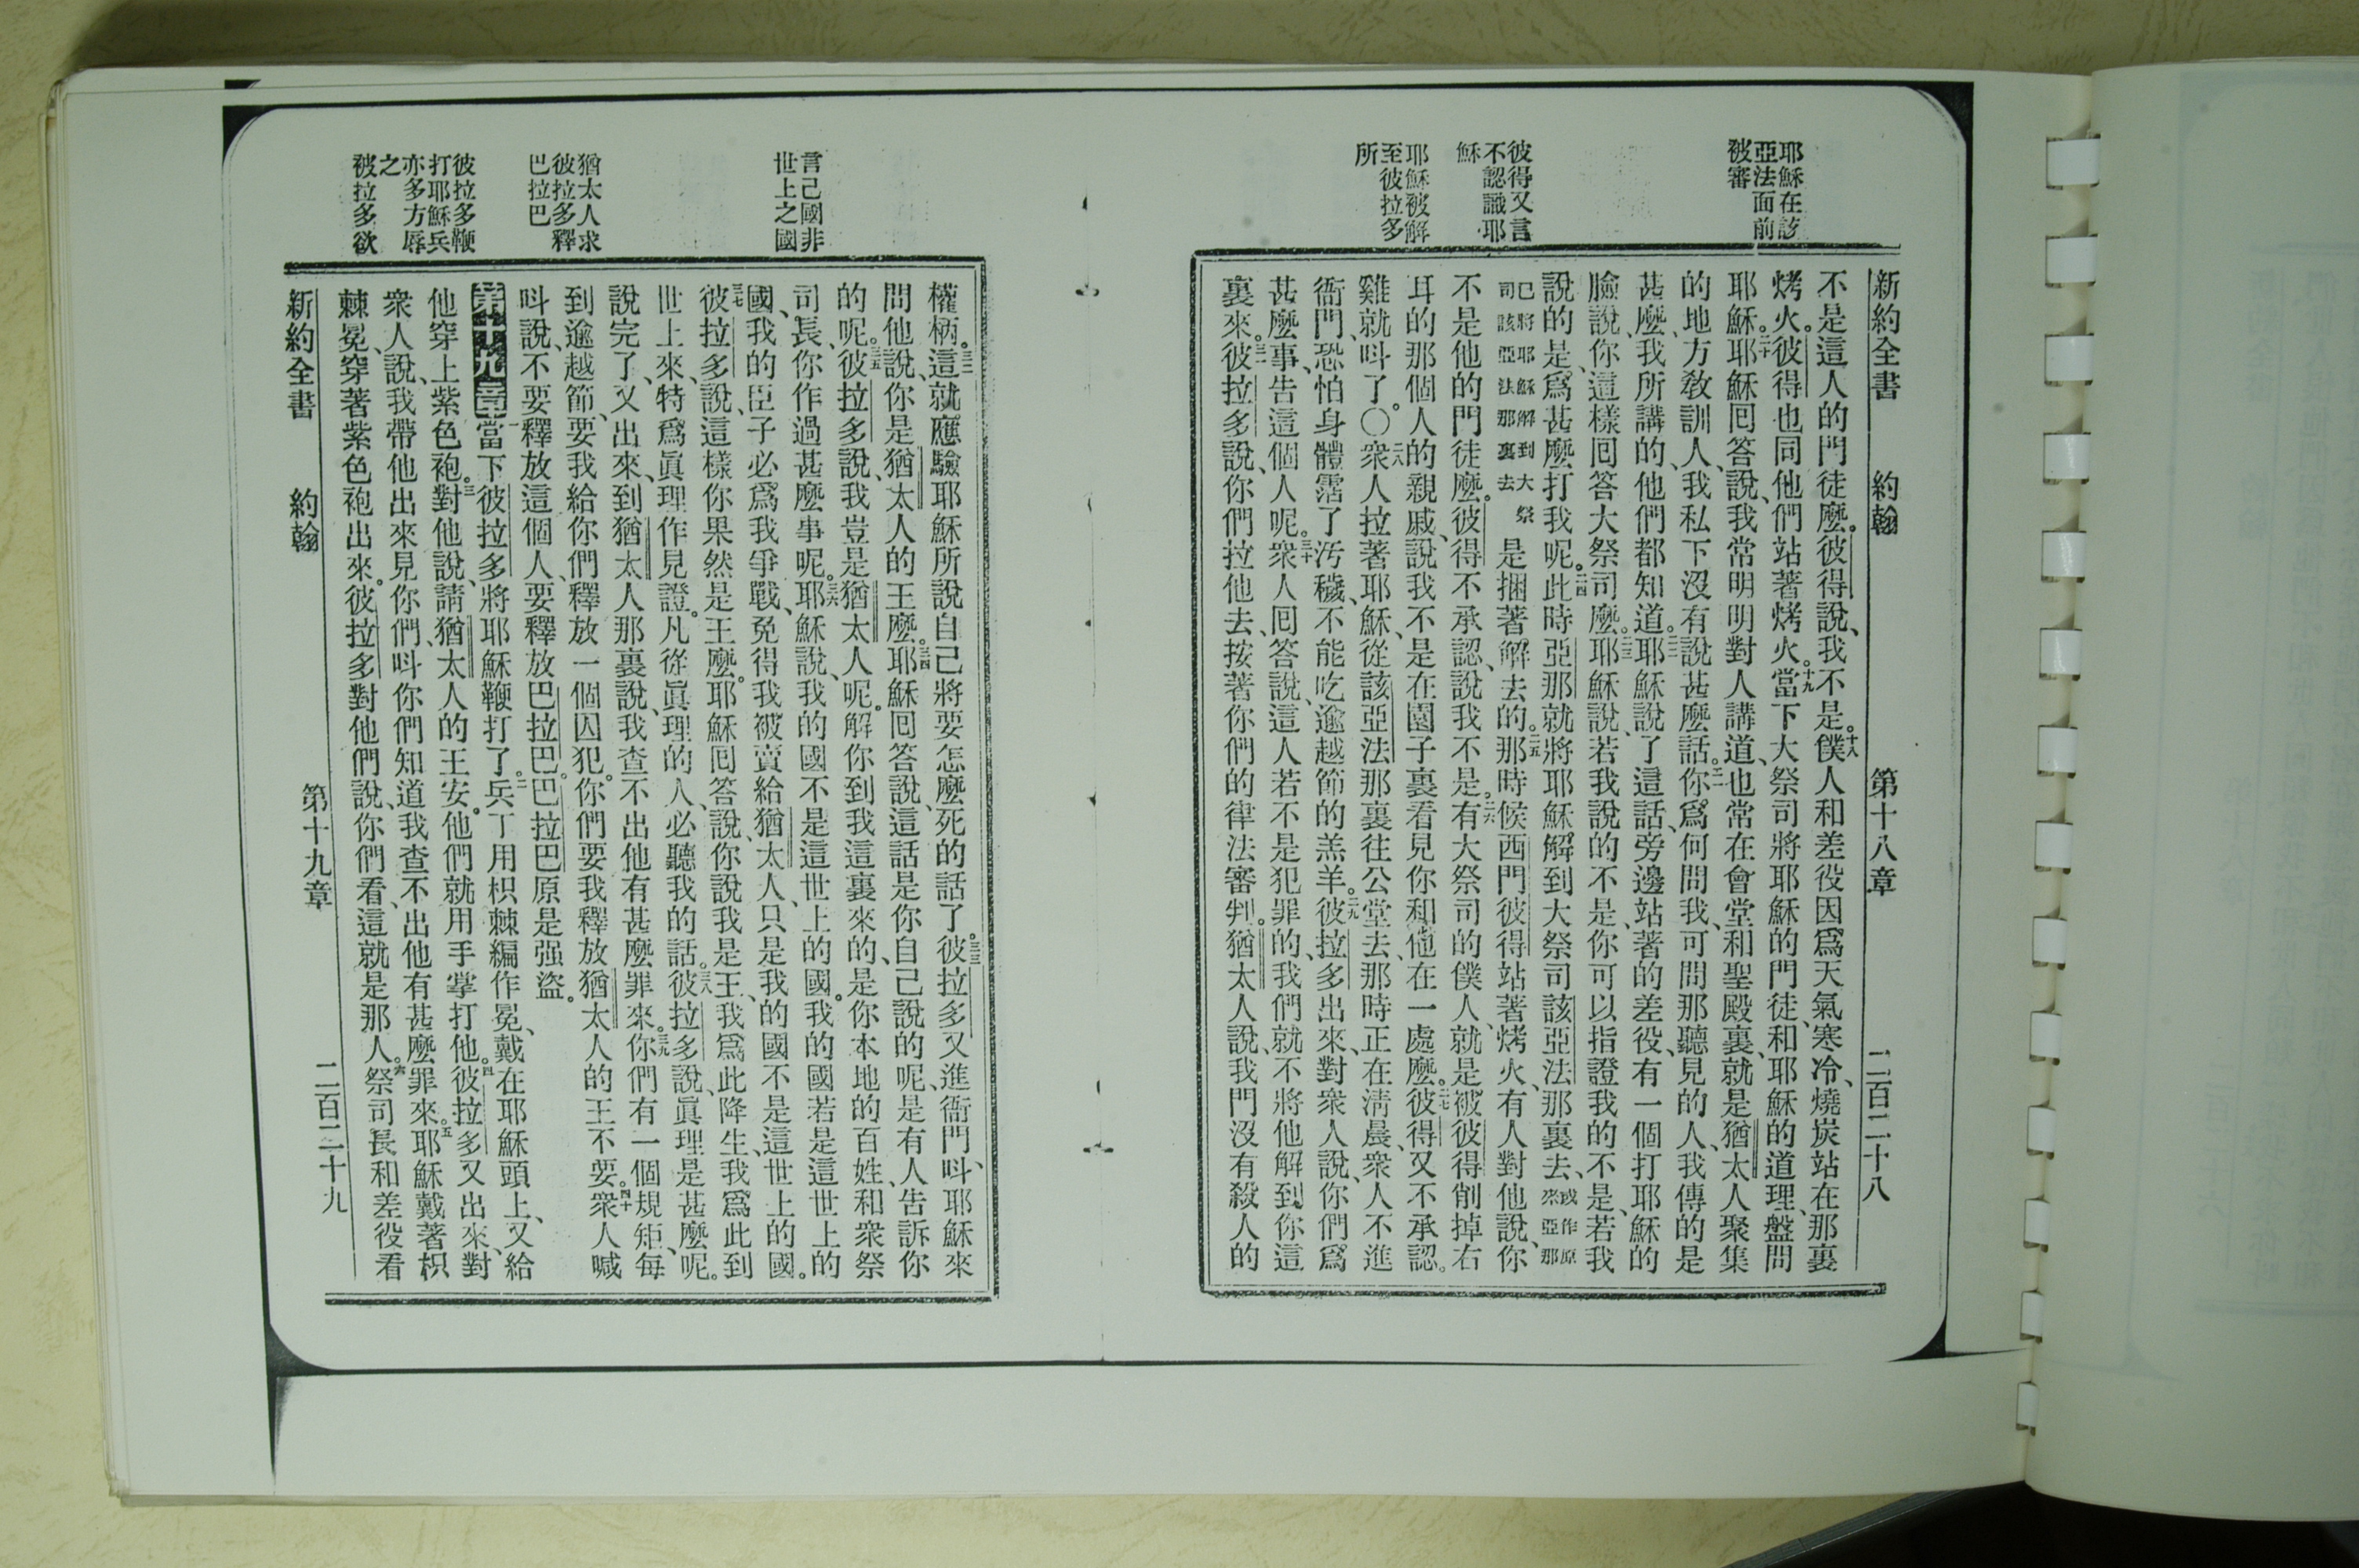 新約全書 約翰 第十八章 二百二十八
耶穌在該
亞法面前
被審
彼得又言
不認識耶
穌
耶穌被解
至彼拉多
所
不是這人的門徒麼。彼得說、我不是。十八僕人和差役因爲天氣寒冷、燒炭站在那裏
烤火。彼得也同他們站著烤火。十九當下大祭司將耶穌的門徒、和耶穌的道理、盤問
耶穌。二十耶穌囘答說、我常明明對人講道、也常在會堂和聖殿裏、就是猶太人聚集
的地方教訓人、我私下沒有說甚麼話。二一你爲何問我、可問那聽見的人、我傳的是
甚麼、我所講的、他們都知道。二二耶穌說了這話、旁邊站著的差役、有一個打耶穌的
臉說、你這樣囘答大祭司麼。二三耶穌說、若我說的不是、你可以指證我的不是、若我
說的是、爲甚麼打我呢。二四此時亞那就將耶穌解到大祭司該亞法那裏去、或作原來亞那
已將耶穌解到大祭司該亞法那裏去 是捆著解去的。二五那時候西門彼得站著烤火、有人對他說、你
不是他的門徒麼。彼得不承認、說我不是。二六有大祭司的僕人、就是被彼得削掉右
耳的那個人的親戚、說我不是在園子裏看見你和他在一處麼。二七彼得又不承認。
雞就呌了。〇二八衆人拉著耶穌、從該亞法那裏往公堂去、那時正在淸晨、衆人不進
衙門、恐怕身體霑了汚穢、不能吃逾越節的羔羊。二九彼拉多出來、對衆人說、你們爲
甚麼事、告這個人呢。三十衆人囘答說、這人若不是犯罪的、我們就不將他解到你這
裏來。三一彼拉多說、你們拉他去、按著你們的律法審判。猶太人說、我門沒有殺人的
言己國非
世上之國
猶太人求
彼拉多釋
巴拉巴
彼拉多鞭
打耶穌兵
亦多方辱
之
被拉多欲
權柄。三二這就應驗耶穌所說自己將要怎麼死的話了。三三彼拉多又進衙門、呌耶穌來
問他說、你是猶太人的王麼。三四耶穌囘答說、這話是你自己說的呢、是有人告訴你
的呢。三五彼拉多說、我豈是猶太人呢。解你到我這裏來的、是你本地的百姓、和衆祭
司長、你作過甚麼事呢。三六耶穌說、我的國不是這世上的國。我的國若是這世上的
國、我的臣子必爲我爭戰、免得我被賣給猶太人、只是我的國不是這世上的國。
三七彼拉多說、這樣你果然是王麼。耶穌囘答說、你說我是王、我爲此降生、我爲此到
世上來、特爲眞理作見證。凡從眞理的人、必聽我的話。三八彼拉多說、眞理是甚麼呢。
說完了、又出來、到猶太人那裏說、我查不出他有甚麼罪來。三九你們有一個規矩、每
到逾越節、要我給你們釋放一個囚犯。你們要我釋放猶太人的王不要。四十衆人喊
呌說、不要釋放這個人、要釋放巴拉巴。巴拉巴原是强盜。
第十九章 一當下彼拉多將耶穌鞭打了。二兵丁用枳棘編作冕、戴在耶穌頭上、又給
他穿上紫色袍。三對他說、請猶太人的王安。他們就用手掌打他。四彼拉多又出來、對
衆人說、我帶他出來見你們、呌你們知道我查不出他有甚麼罪來。五耶穌戴著枳
棘冕、穿著紫色袍出來。彼拉多對他們說、你們看、這就是那人。六祭司長和差役看
新約全書 約翰 第十九章 二百二十九